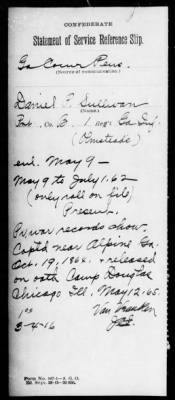 CONFEDERATE
Statement of Service Reference Slip.
Ga Comr Pens.
(Source of communication.)
Daniel P. Sullivan
(Name.)
Co. B. 1. Reg't Ga Inf.
(Olmsteads)
enl. May 9 -
May 9 to July 1. 62
(only roll on file)
Present.
Pr. war records show.
Captd near Alpine Ga.
Oct. 19, 1864. & released
on oath Camp Douglas
Chicago Ill. May 12, 65.
3-4-16
Form No.